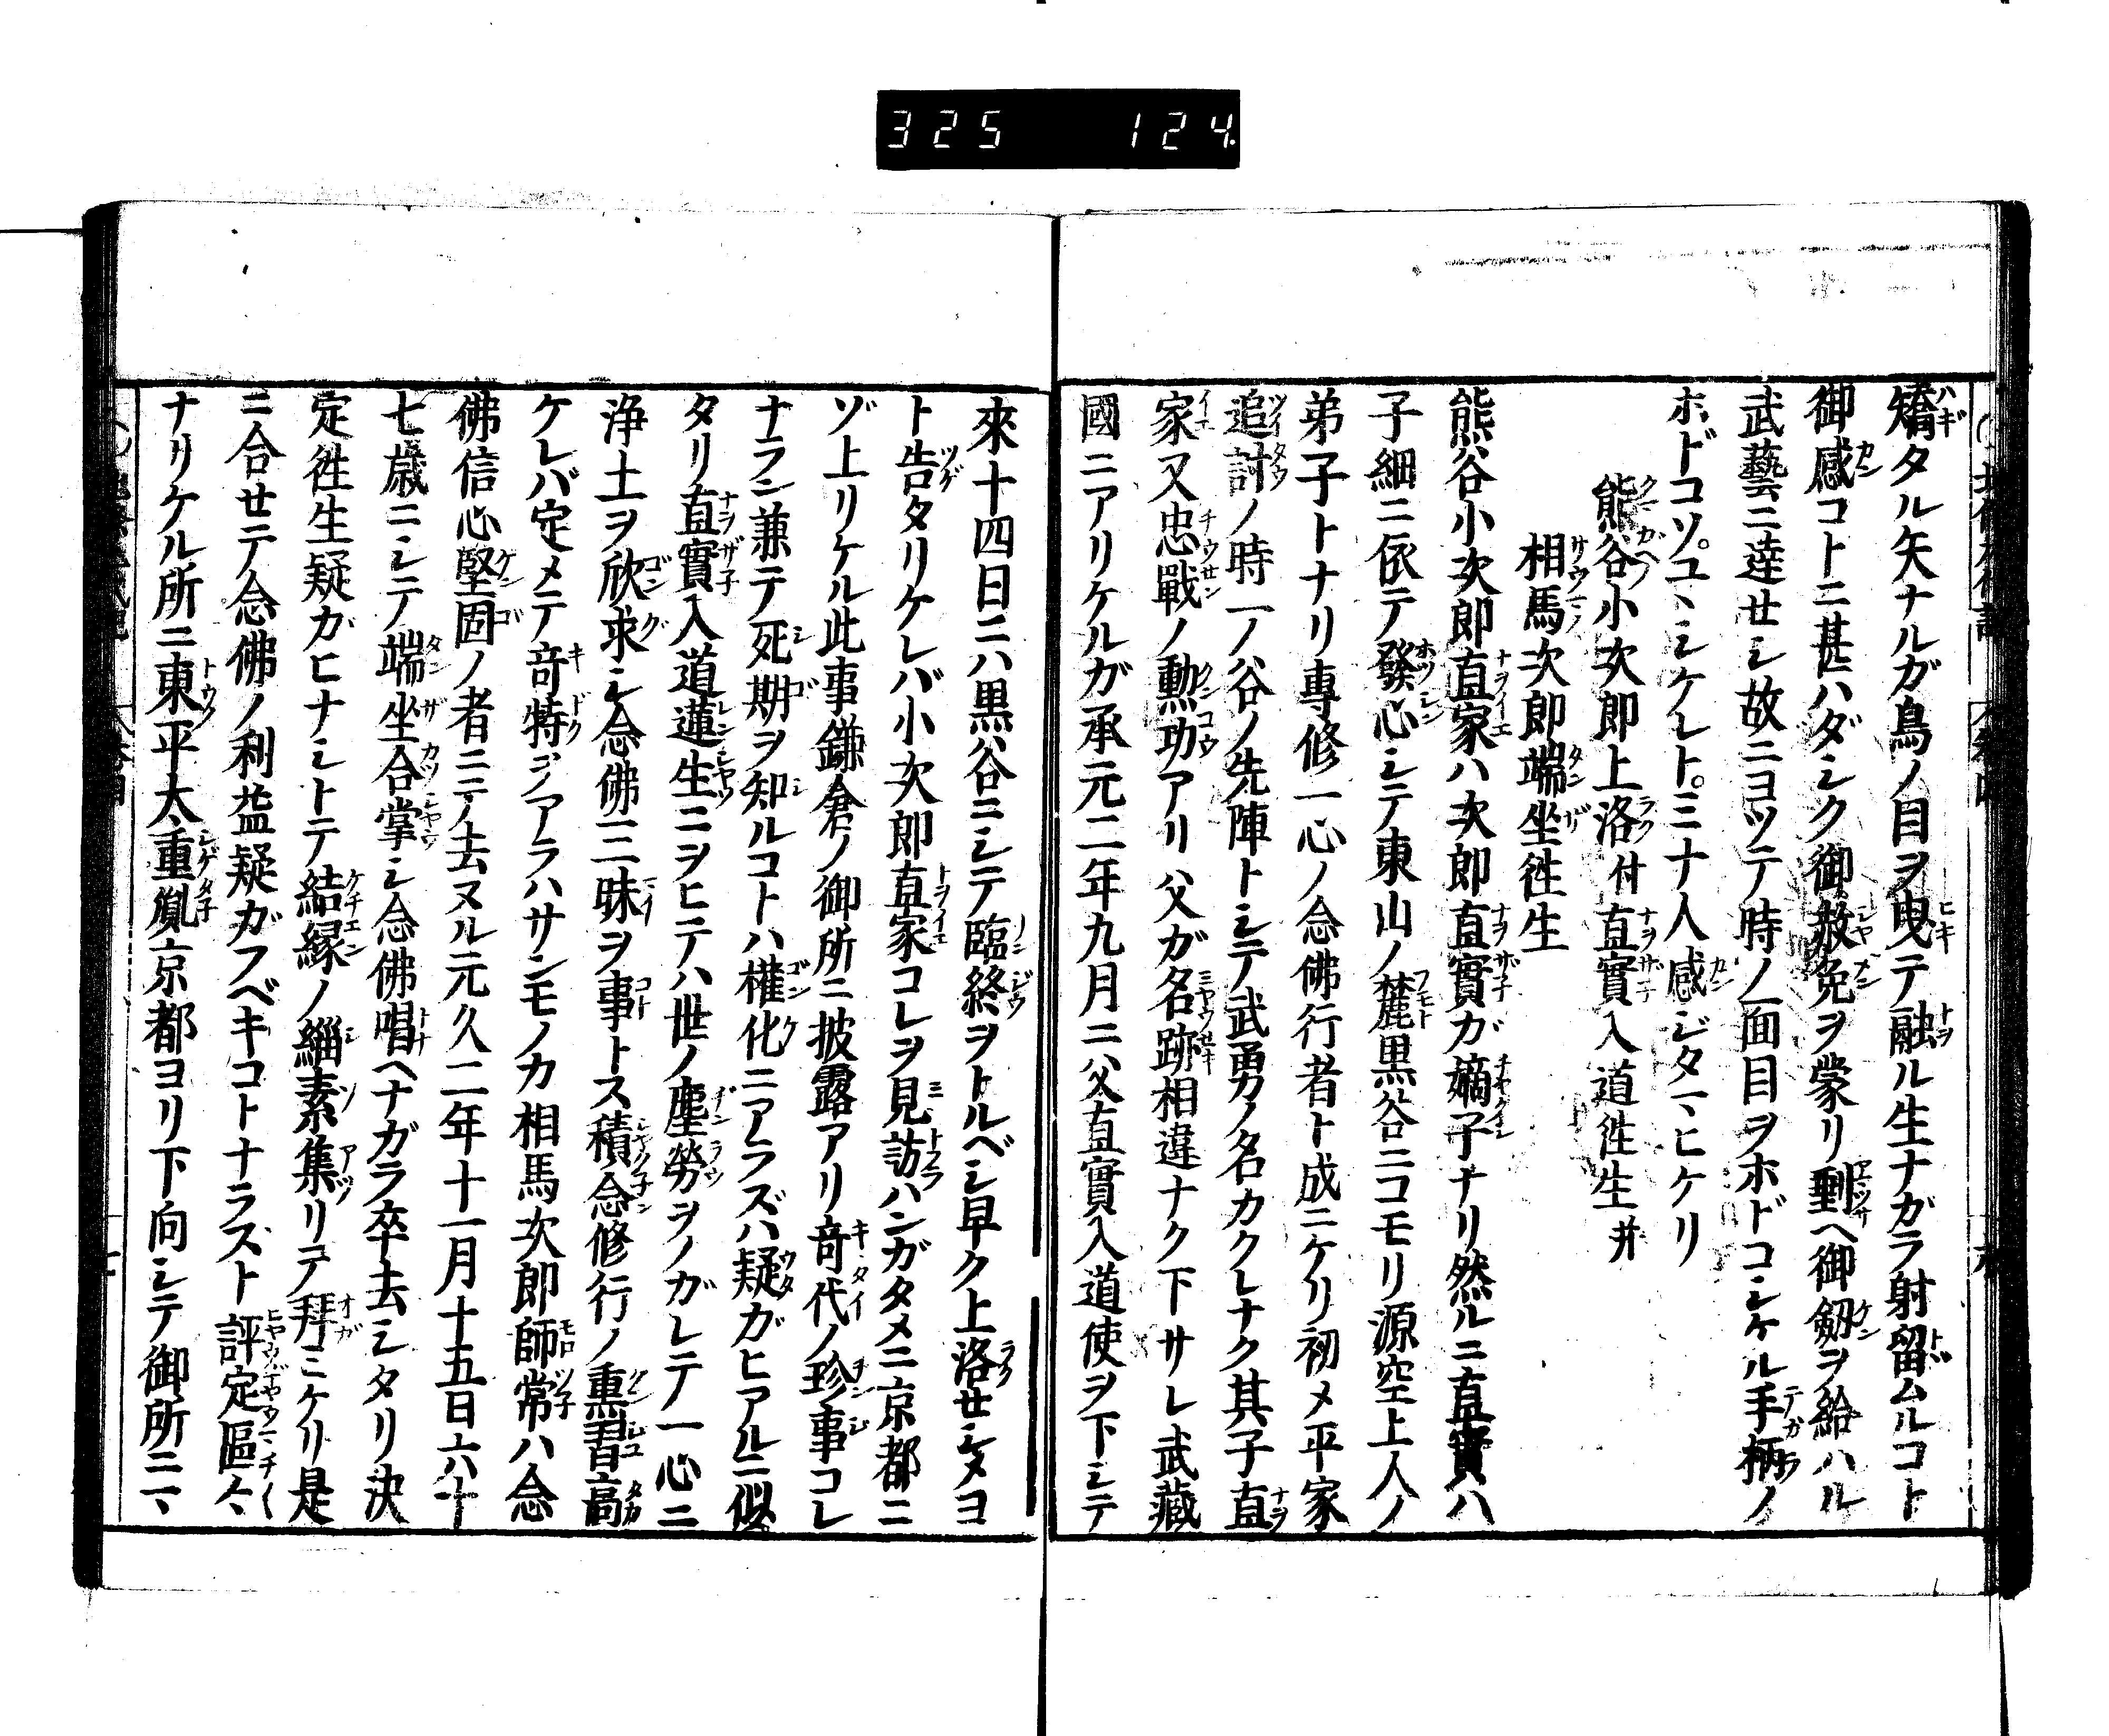 325 124
矯タル矢ナルガ鳥ノ目ヲ曳テ融ル生ナガラ射留ムルコト
御感コトニ甚ハダシク御赦免ヲ蒙リ剰ヘ御劔ヲ給ハル
武藝ニ達セシ故ニヨツテ時ノ面目ヲホドコシケル手柄ノ
ホドコソユヽシケレト。ミナ人感ジタマヒケリ
熊谷小次郎上洛付直實入道徃生并
相馬次郎端坐徃生
熊谷小次郎直家ハ次郎直實ガ嫡子ナリ然ルニ直實ハ
子細ニ依テ發心シテ東山ノ麓黒谷ニコモリ源空上人ノ
弟子トナリ專修一心ノ念佛行者ト成ニケリ初メ平家
追討ノ時一ノ谷ノ先陣トシテ武勇ノ名カクレナク其子直
家又忠戰ノ勲功アリ父ガ名跡相違ナク下サレ武藏
國ニアリケルガ承元二年九月ニ父直實入道使ヲ下シテ
來十四日ニハ黒谷ニシテ臨終ヲトルベシ早ク上洛セシメヨ
ト告タリケレバ小次郎直家コレヲ見訪ハンガタメニ京都ニ
ゾ上リケル此事鎌倉ノ御所ニ披露アリ竒代ノ珍事コレ
ナラン兼テ死期ヲ知ルコトハ權化ニアラズハ疑ガヒアルニ似
タリ直實入道蓮生ニヲヒテハ世ノ塵勞ヲノガレテ一心ニ
浄土ヲ欣求シ念佛三昧ヲ事トス積念修行ノ熏習高
ケレバ定メテ竒特ヲアラハサンモノカ相馬次郎師常ハ念
佛信心堅固ノ者ニテ去ヌル元久二年十一月十五日六十
七歳ニシテ端坐合掌シ念佛唱ヘナガラ卒去シタリ決
定徃生疑ガヒナシトテ結縁ノ緇素集リテ拜ミケリ是
ニ合セテ念佛ノ利益疑ガフベキコトナラスト評定區々
ナリケル所ニ東平太重胤京都ヨリ下向シテ御所ニ